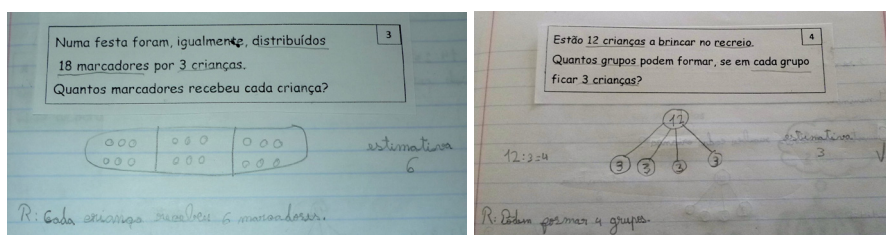 3
Numa festa foram, igualmente, distribuídos
18 marcadores por 3 crianças.
Quantos marcadores recebeu cada criança?
estimativa
6
R: Cada criança recebeu 6 marcadores.
4
Estão 12 crianças a brincar no recreio.
Quantos grupos podem formar, se em cada grupo
ficar 3 crianças?
12
12:3=4
3 3 3 3
estimativa
3
R: Podem formar 4 grupos.